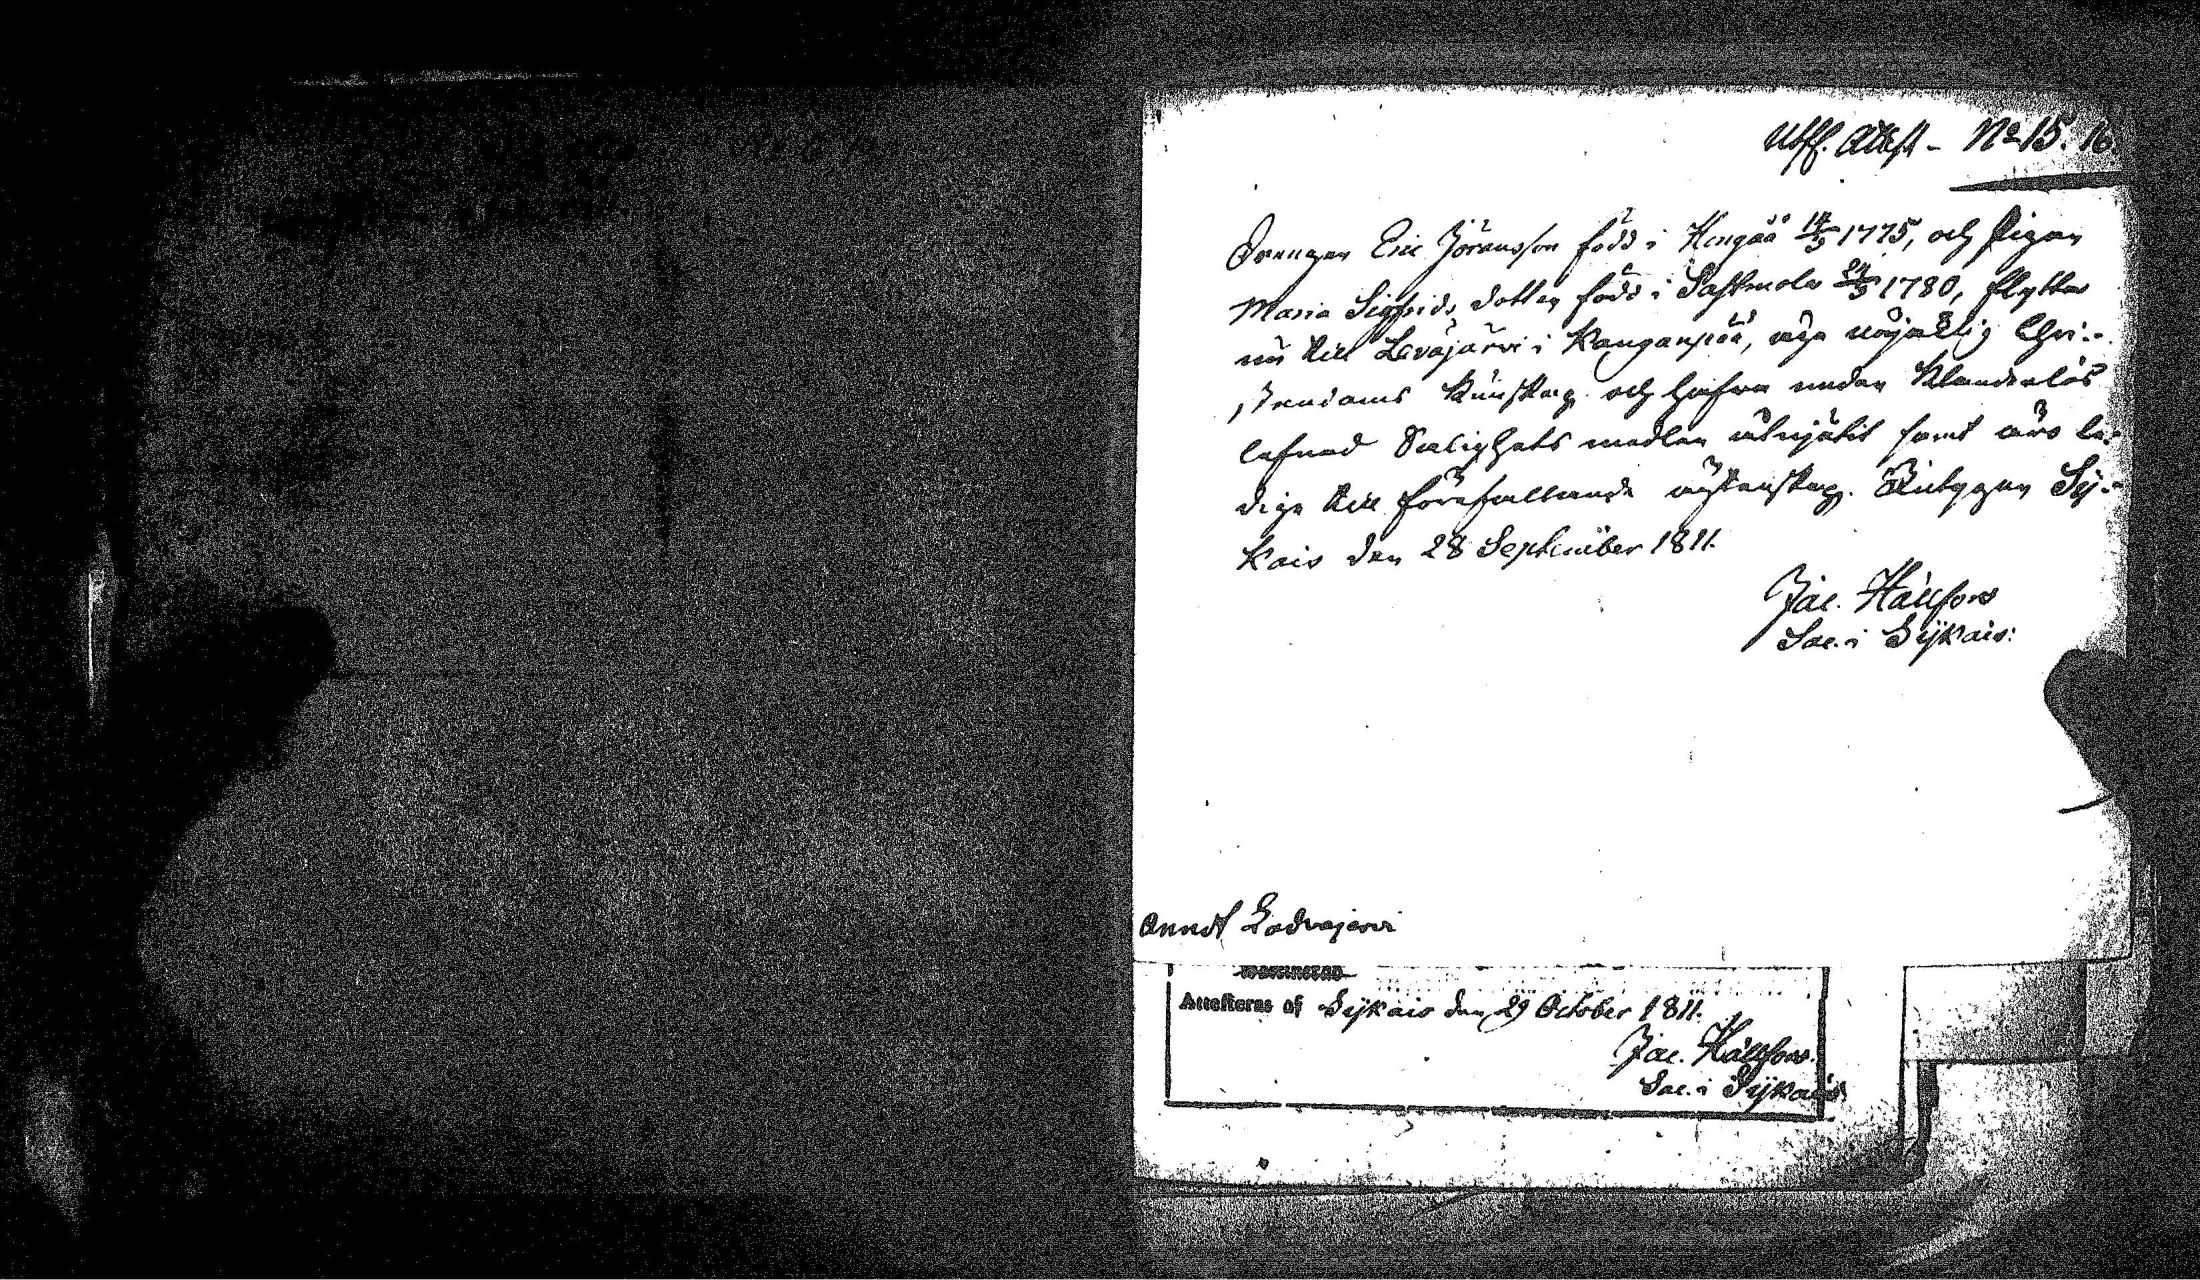 Utfl. Attest – No 15. 16.
Drengen Eric Jöransson född i Kengää 14/5 1775, och Pigan
Maria Sigfrids dotter född i Sastmola 24/5 1780, flytta
nu till Leväjärvi i Kangangää, äga nöjaktig Chri-
stendoms kunskap och hafva under klanderlös
lefnad Salighets medlen åtnjutit samt äro le-
dige till förefallande äktenskap.
kais den 28 September 1811.
Jac. Hällfors
Sac. i Siikais:
Annot Ladvajervi
Attesteras af Siikais den 29 October 1811.
Jac. Hällfors.
Sac. i Siikais